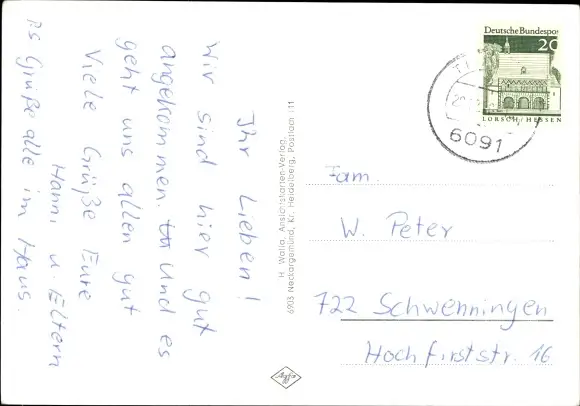 Ihr Lieben!
Wir sind hier gut
angekommen. Und es
geht uns allen gut
Viele Grüße Eure
Hanni u. Eltern
PS Grüße alle im Haus.
H. Walla, Ansichtskarten-Verlag,
6903 Neckargemünd, Kr. Heidelberg, Postfach 111
Agfa
Deutsche Bundespost
20
LORSCH/HESSEN
6091
Fam.
W. Peter
722 Schwenningen
Hochfirststr. 16